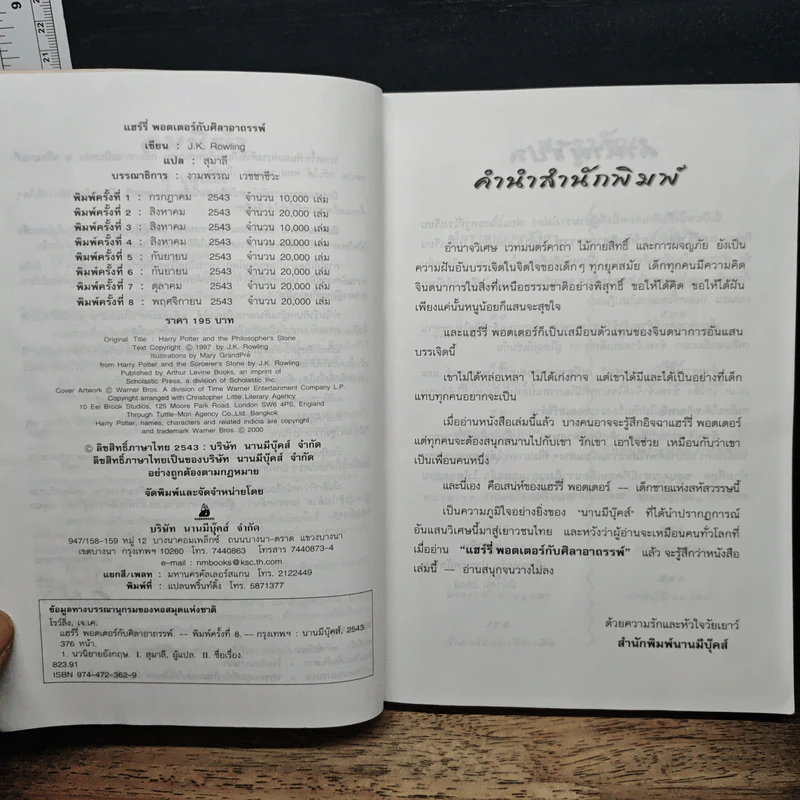 แฮร์รี่ พอตเตอร์กับศิลาอาถรรพ์
เขียน : J.K. Rowling
แปล : สุมาลี
บรรณาธิการ : งามพรรณ เวชชาชีวะ
พิมพ์ครั้งที่ 1 : กรกฎาคม 2543 จำนวน 10,000 เล่ม
พิมพ์ครั้งที่ 2 : สิงหาคม 2543 จำนวน 20,000 เล่ม
พิมพ์ครั้งที่ 3 : สิงหาคม 2543 จำนวน 10,000 เล่ม
พิมพ์ครั้งที่ 4 : สิงหาคม 2543 จำนวน 20,000 เล่ม
พิมพ์ครั้งที่ 5 : กันยายน 2543 จำนวน 20,000 เล่ม
พิมพ์ครั้งที่ 6 : กันยายน 2543 จำนวน 20,000 เล่ม
พิมพ์ครั้งที่ 7 : ตุลาคม 2543 จำนวน 20,000 เล่ม
พิมพ์ครั้งที่ 8 : พฤศจิกายน 2543 จำนวน 20,000 เล่ม
ราคา 195 บาท
Original Title : Harry Potter and the Philosopher's Stone
Text Copyright © 1997 by J.K. Rowling
Illustrations by Mary GrandPré
from Harry Potter and the Sorcerer's Stone by J.K. Rowling.
Published by Arthur Levine Books, an imprint of
Scholastic Press, a division of Scholastic Inc.
Cover Artwork © Warner Bros. A division of Time Warner Entertainment Company L.P.
Copyright arranged with Christopher Little Literary Agency
10 Eel Brook Studios, 125 Moore Park Road, London SW6 4PS, England
Through Tuttle-Mori Agency Co.,Ltd. Bangkok
Harry Potter, names, characters and related indicia are copyright
and trademark Warner Bros. © 2000
© ลิขสิทธิ์ภาษาไทย 2543 : บริษัท นานมีบุ๊คส์ จำกัด
ลิขสิทธิ์ภาษาไทยเป็นของบริษัท นานมีบุ๊คส์ จำกัด
อย่างถูกต้องตามกฎหมาย
จัดพิมพ์และจัดจำหน่ายโดย
บริษัท นานมีบุ๊คส์ จำกัด
947/158-159 หมู่ 12 บางนาคอมเพล็กซ์ ถนนบางนา-ตราด แขวงบางนา
เขตบางนา กรุงเทพฯ 10260 โทร. 7440863 โทรสาร 7440873-4
e-mail : nmbooks@ksc.th.com
แยกสี/เพลท : มหานครคัลเลอร์สแกน โทร. 2122449
พิมพ์ที่ : แปลนพริ้นท์ติ้ง โทร. 5871377
ข้อมูลทางบรรณานุกรมของหอสมุดแห่งชาติ
โรว์ลิ่ง, เจ.เค.
แฮร์รี่ พอตเตอร์กับศิลาอาถรรพ์. -- พิมพ์ครั้งที่ 8. -- กรุงเทพฯ : นานมีบุ๊คส์, 2543.
376 หน้า.
1. นวนิยายอังกฤษ. I. สุมาลี, ผู้แปล. II. ชื่อเรื่อง.
823.91
ISBN 974-472-362-9
คำนำสำนักพิมพ์
อำนาจวิเศษ เวทมนตร์คาถา ไม้กายสิทธิ์ และการผจญภัย ยังเป็น
ความฝันอันบรรเจิดในจิตใจของเด็กๆ ทุกยุคสมัย เด็กทุกคนมีความคิด
จินตนาการในสิ่งที่เหนือธรรมชาติอย่างพิสุทธิ์ ขอให้ได้คิด ขอให้ได้ฝัน
เพียงแค่นั้นหนูน้อยก็แสนจะสุขใจ
และแฮร์รี่ พอตเตอร์ก็เป็นเสมือนตัวแทนของจินตนาการอันแสน
บรรเจิดนี้
เขาไม่ได้หล่อเหลา ไม่ได้เก่งกาจ แต่เขาได้มีและได้เป็นอย่างที่เด็ก
แทบทุกคนอยากจะเป็น
เมื่ออ่านหนังสือเล่มนี้แล้ว บางคนอาจจะรู้สึกอิจฉาแฮร์รี่ พอตเตอร์
แต่ทุกคนจะต้องสนุกสนานไปกับเขา รักเขา เอาใจช่วย เหมือนกับว่าเขา
เป็นเพื่อนคนหนึ่ง
และนี่เอง คือเสน่ห์ของแฮร์รี่ พอตเตอร์ — เด็กชายแห่งสหัสวรรษนี้
เป็นความภูมิใจอย่างยิ่งของ "นานมีบุ๊คส์" ที่ได้นำปรากฏการณ์
อันแสนวิเศษนี้มาสู่เยาวชนไทย และหวังว่าผู้อ่านจะเหมือนคนทั่วโลกที่
เมื่ออ่าน "แฮร์รี่ พอตเตอร์กับศิลาอาถรรพ์" แล้ว จะรู้สึกว่าหนังสือ
เล่มนี้ — อ่านสนุกจนวางไม่ลง
ด้วยความรักและหัวใจวัยเยาว์
สำนักพิมพ์นานมีบุ๊คส์